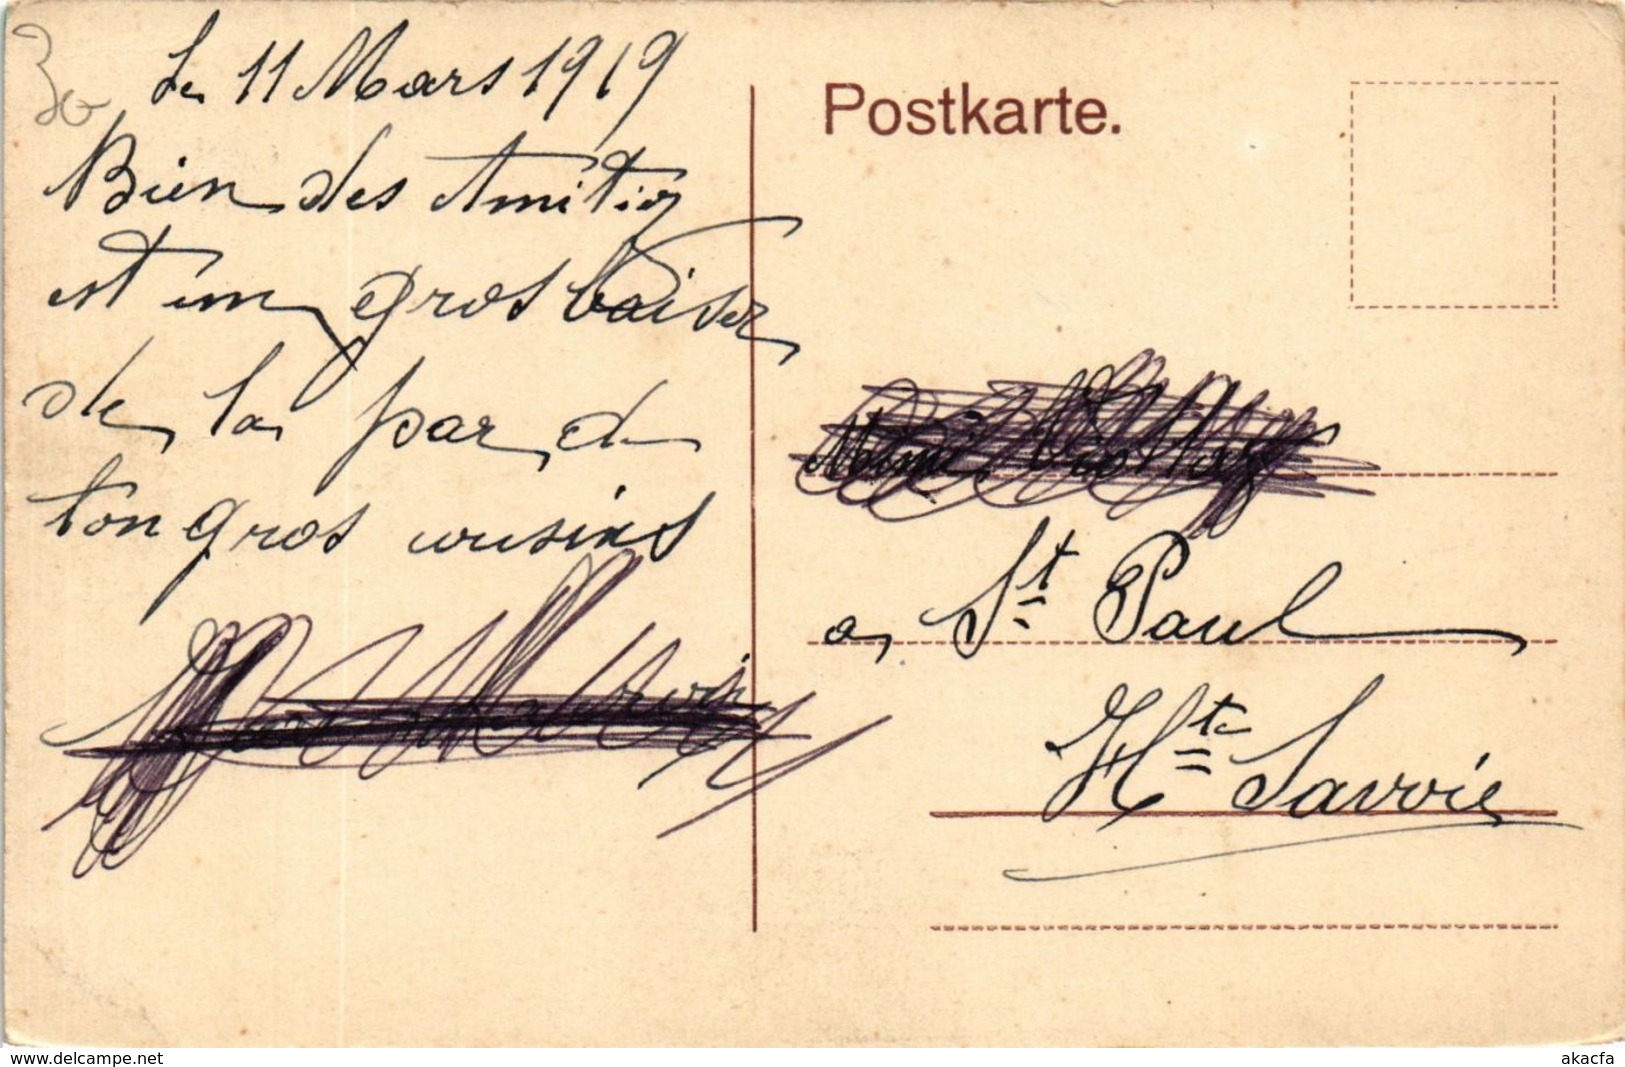 30
Le 11 Mars 1919
Bien des Amitiez
est un gros baiser
de la par de
ton gros cousins
Postkarte.
a St Paul
Hte Savoie
www.delcampe.net
akacfa